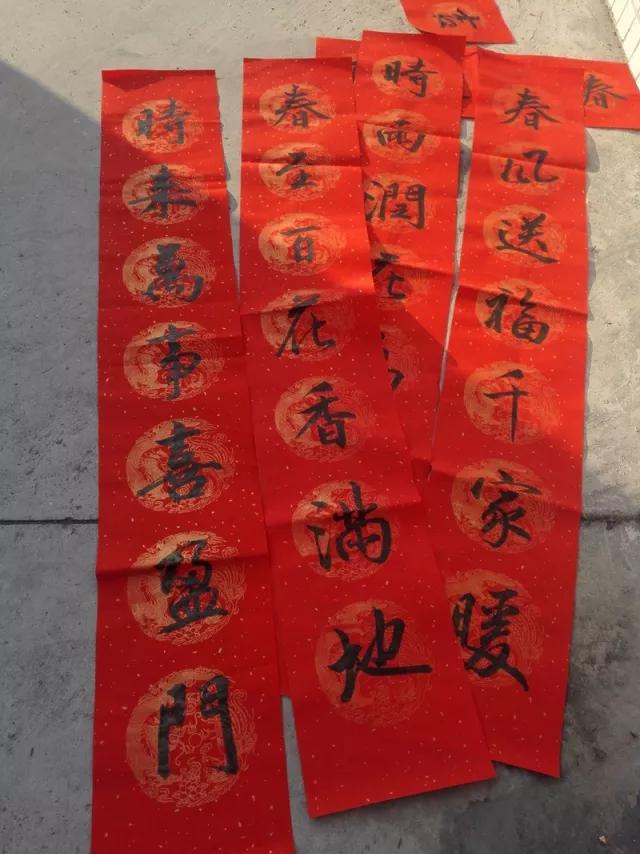 春
春风送福千家暖
時雨潤
春至百花香滿地
時来萬事喜盈門